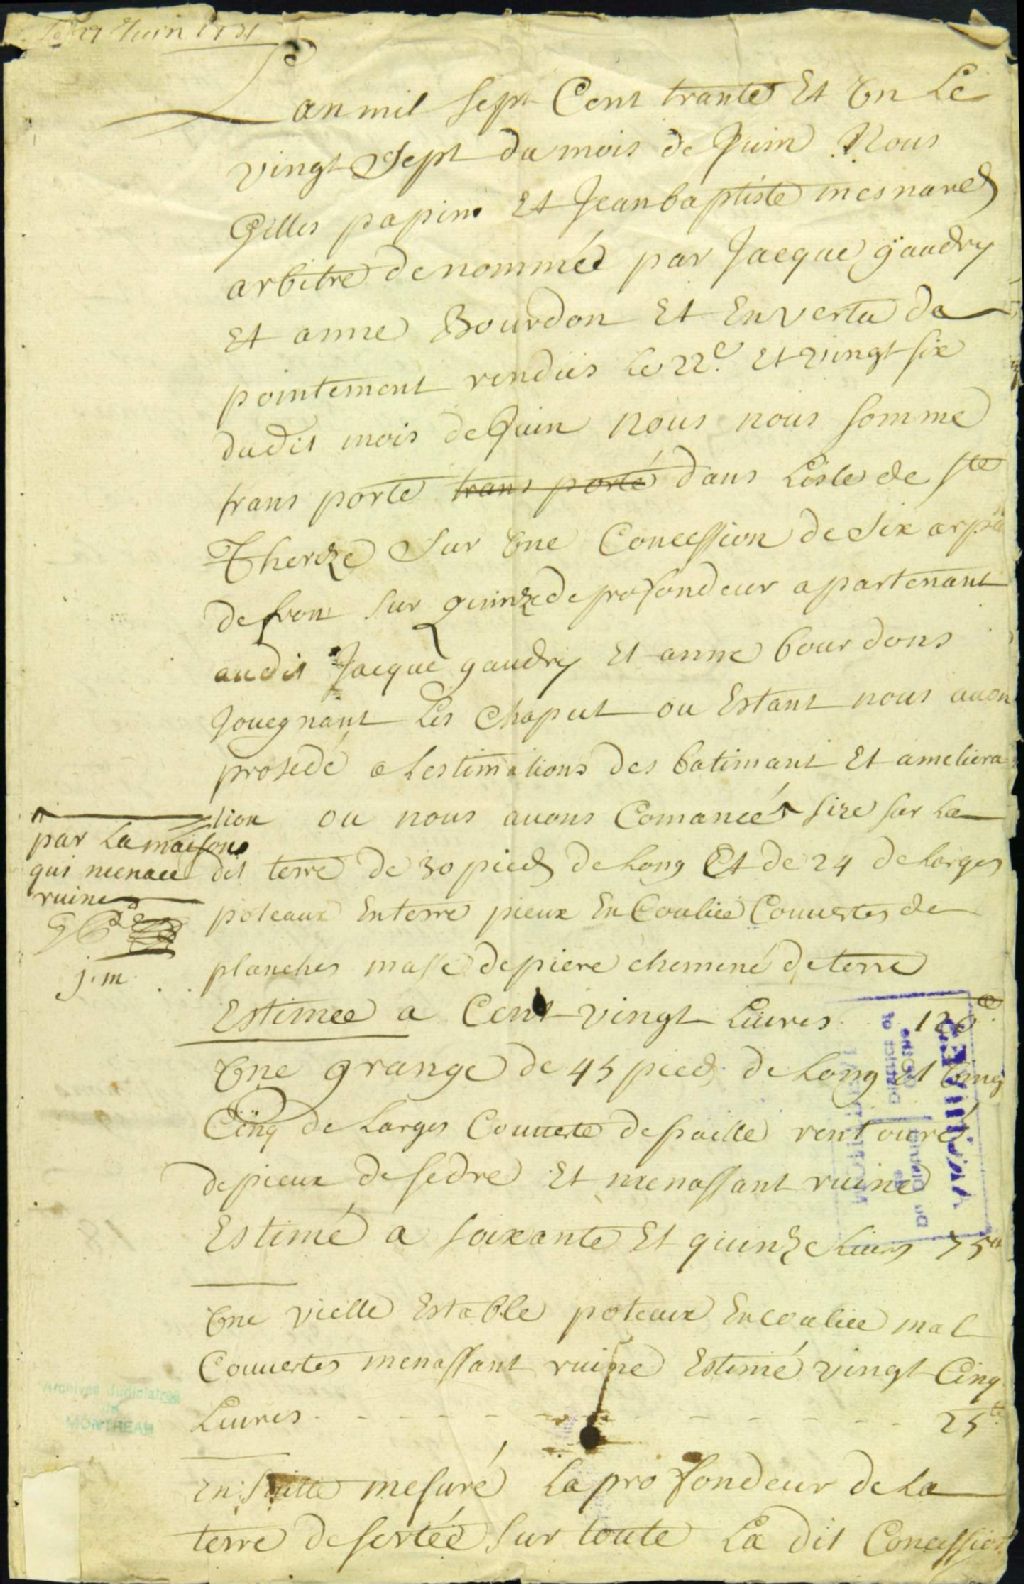 27 Juin 1731
Lan mil sept Cent trante Et Un Le
vingt Sept du mois de Juin Nous
Gilles papin Et Jean baptiste mesnard
arbitre denommé par Jacque gaudry
Et anne Bourdon Et En vertu da
pointement rendüs Le 22e. Et vingt six
dudit mois de Juin nous nous somme
trans porté trans porté dans Lisle de Ste
Thereze Sur Une Concession de Six arpt
de front sur quinze de profondeur apartenant
audit Jacque gaudry Et anne bourdons
Jouegnant Les Chaput ou Estant nous avon
prosedé a Lestimations des batimant Et ameliora
tion ou nous avons Comancé size sur La
par La maison
qui menace
ruine
j. m.
dit terre de 30 pied de Long Et de 24 de Larges
poteaux En terre pieux En Coulice Couvertes de
planches massé de piere cheminé de terre
Estimée a Cent vingt Livres 120
Une grange de 45 pied de Long Et Vingt
Cinq de Larges Couverte de paille rentouré
de pieux de sedre Et menassant ruine
Estimé a soixante Et quinze Livres 75
Une vielle Estable poteaux En coulice mal
Couvertes menassant ruine Estimé vingt Cinq
Livres - - - - - - - - - - 25
En suitte mesuré La profondeur de La
terre desertée sur toute La dit Concession
ARCHIVES
District of
Du District de
Archives Judiciaires
de
MONTREAL